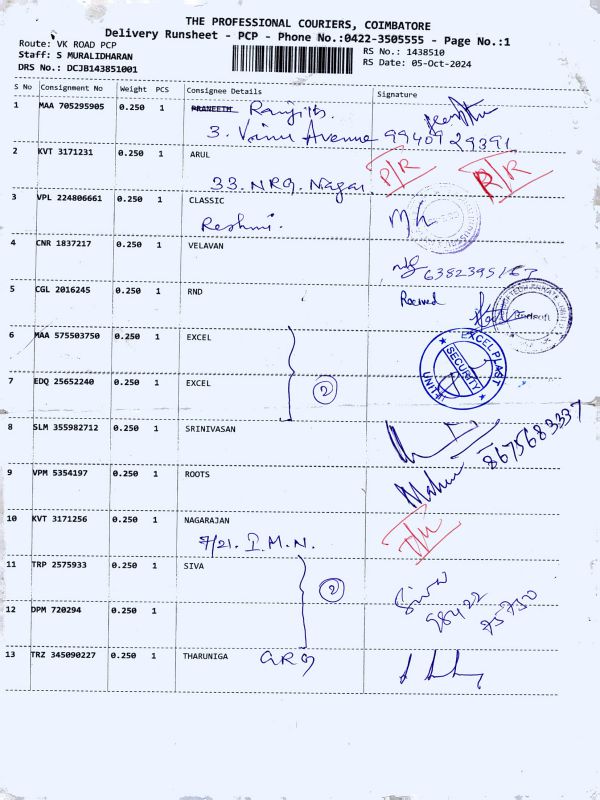 THE PROFESSIONAL COURIERS, COIMBATORE
Delivery Runsheet - PCP - Phone No.:0422-3505555 - Page No.:1
Route: VK ROAD PCP
Staff: S MURALIDHARAN
DRS No.: DCJB143851001
RS No.: 1438510
RS Date: 05-Oct-2024
S No Consignment No Weight PCS Consignee Details Signature
1 MAA 705295905 0.250 1 PRANEETH Ranjith
3. Vainu Avenue 9940929391
2 KVT 3171231 0.250 1 ARUL
33. NRG. Nagar P/R R/R
3 VPL 224806661 0.250 1 CLASSIC
Reshmi.
4 CNR 1837217 0.250 1 VELAVAN
5 CGL 2016245 0.250 1 RND Received
6 MAA 575503750 0.250 1 EXCEL
EXCEL PLAST
SECURITY
UNIT-II
7 EDQ 25652240 0.250 1 EXCEL 2
8 SLM 355982712 0.250 1 SRINIVASAN
8675683337
9 VPM 5354197 0.250 1 ROOTS
10 KVT 3171256 0.250 1 NAGARAJAN
7/21. I.M.N.
11 TRP 2575933 0.250 1 SIVA
2 Siva
98422
75730
12 DPM 720294 0.250 1
13 TRZ 345090227 0.250 1 THARUNIGA GRG